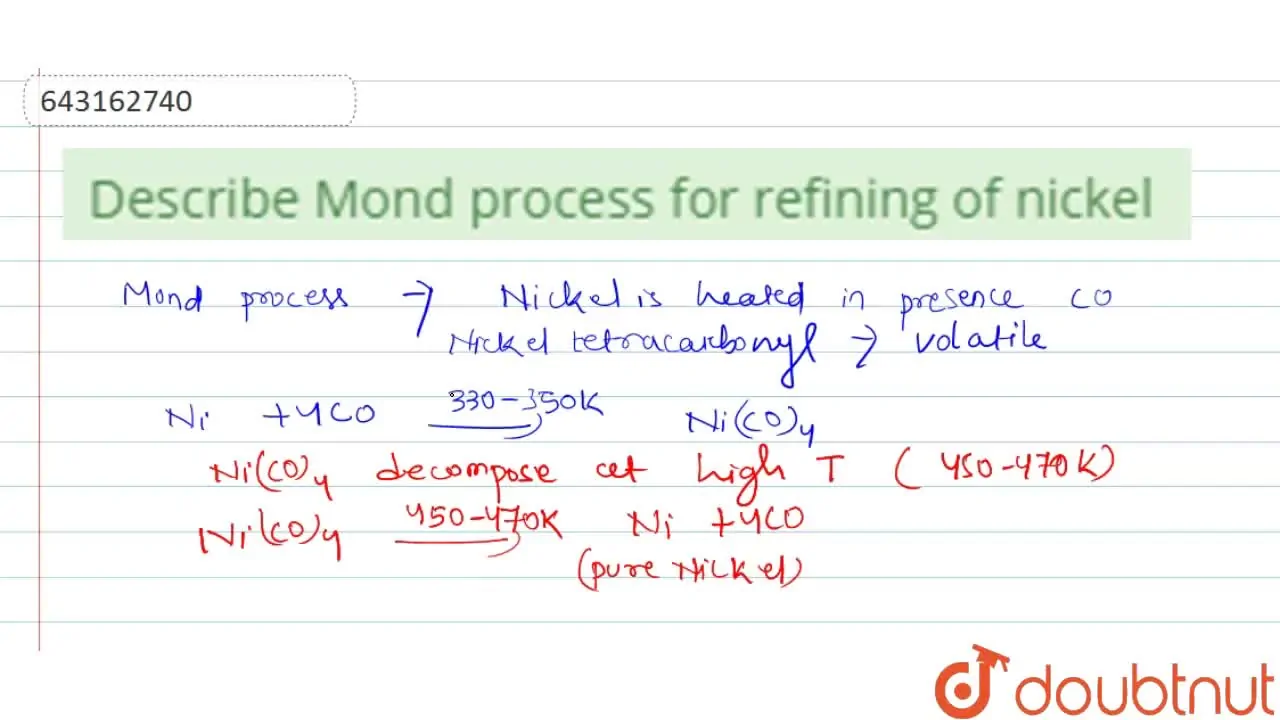 643162740
Describe Mond process for refining of nickel
Mond process → Nickel is heated in presence CO
Nickel tetracarbonyl → volatile
Ni + 4CO 330-350K Ni(CO)4
Ni(CO)4 decompose at high T (450-470K)
Ni(CO)4 450-470K Ni + 4CO
(pure Nickel)
doubtnut